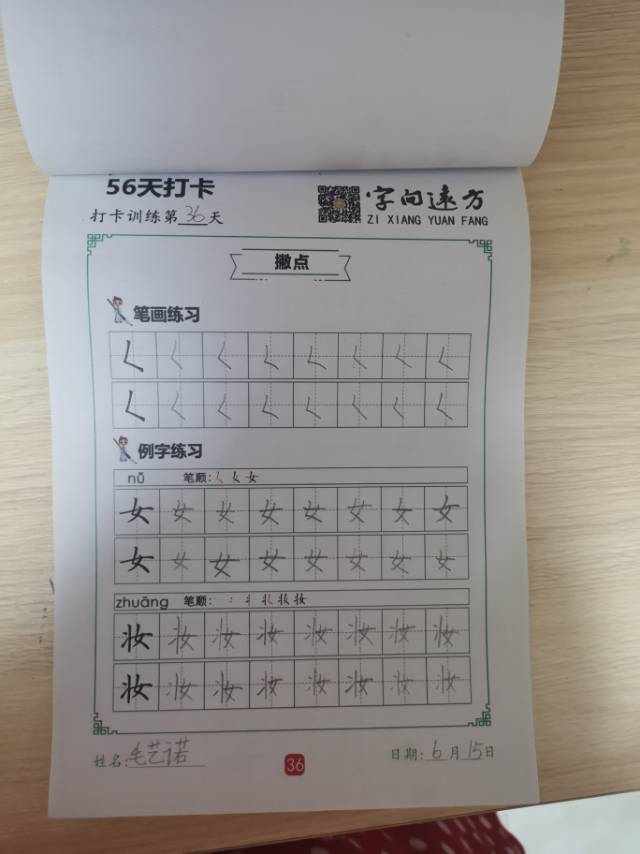 56天打卡
字向远方
打卡训练第36天
ZI XIANG YUAN FANG
撇点
笔画练习
𡿨 𡿨 𡿨 𡿨 𡿨 𡿨 𡿨 𡿨
𡿨 𡿨 𡿨 𡿨 𡿨 𡿨 𡿨 𡿨
例字练习
nǚ 笔顺: 女
女 女 女 女 女 女 女 女
女 女 女 女 女 女 女 女
zhuāng 笔顺: 妆
妆 妆 妆 妆 妆 妆 妆 妆
妆 妆 妆 妆 妆 妆 妆 妆
姓名:毛艺诺
36
日期:6月15日